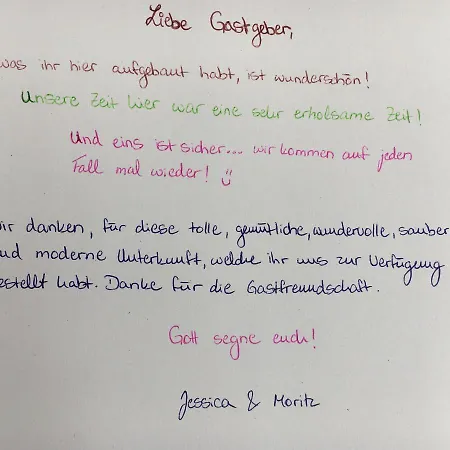 Liebe Gastgeber,
was ihr hier aufgebaut habt, ist wunderschön!
Unsere Zeit hier war eine sehr erholsame Zeit!
Und eins ist sicher... wir kommen auf jeden
Fall mal wieder! :)
ir danken, für diese tolle, gemütliche, wundervolle, sauber
nd moderne Unterkunft, welche ihr uns zur Verfügung
estellt habt. Danke für die Gastfreundschaft.
Gott segne euch!
Jessica & Moritz